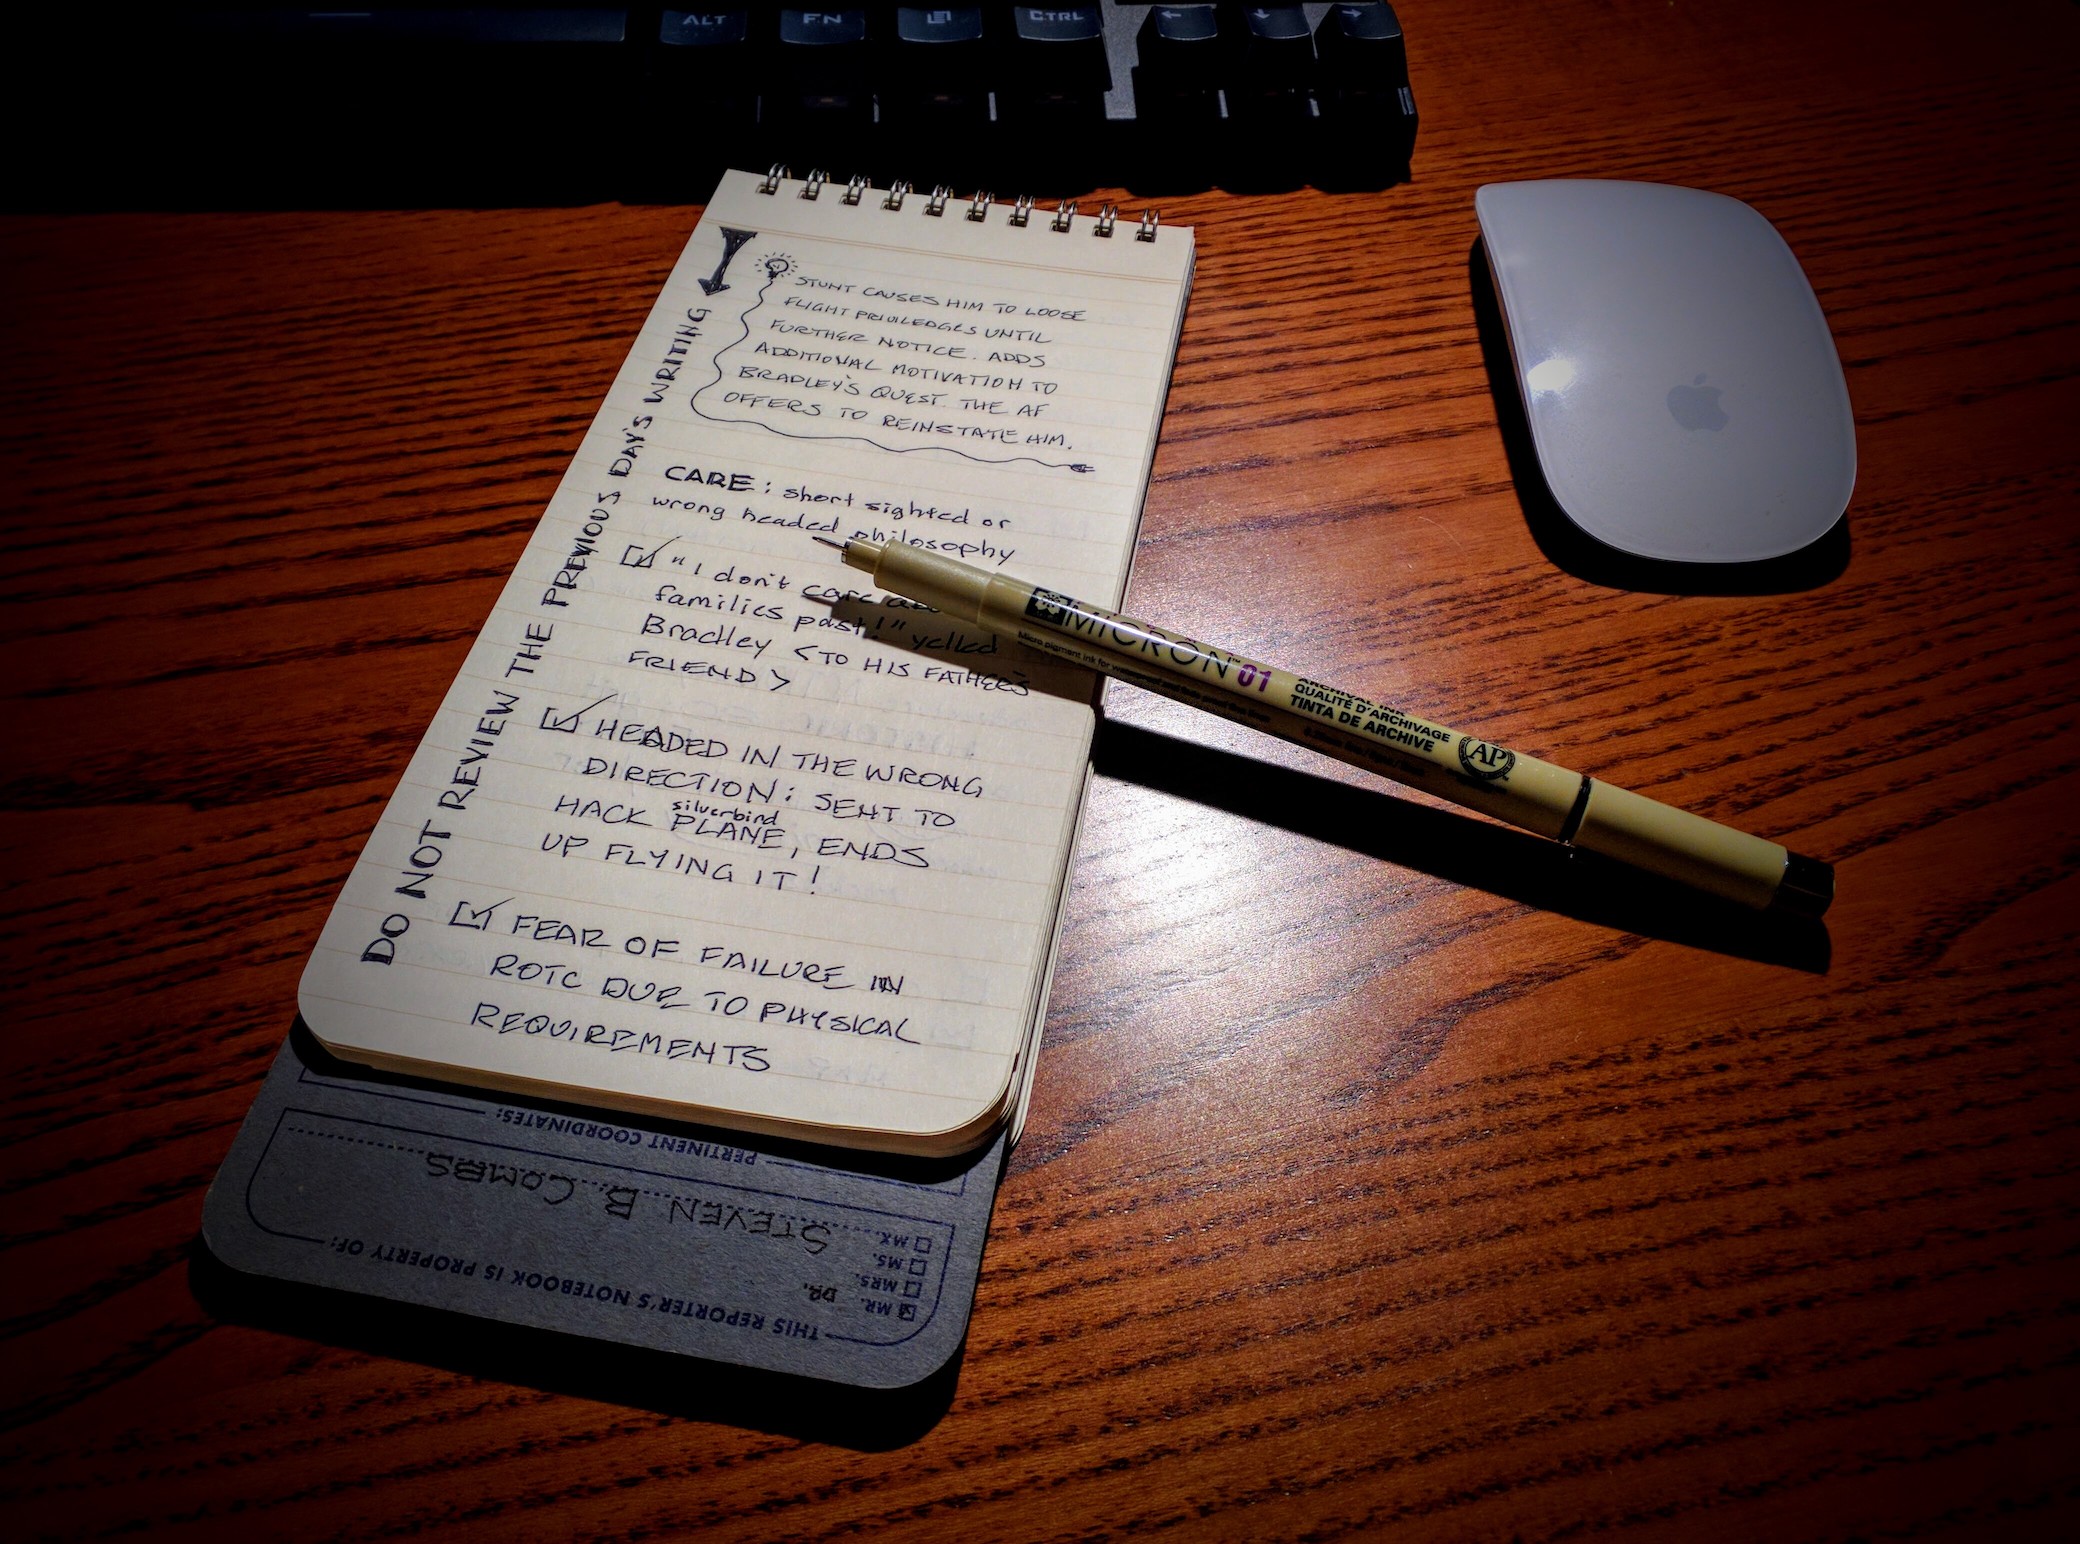 ALT
FN
CTRL
STUNT CAUSES HIM TO LOOSE
FLIGHT PRIVILEDGES UNTIL
FURTHER NOTICE. ADDS
ADDITIONAL MOTIVATION TO
BRADLEY'S QUEST. THE AF
OFFERS TO REINSTATE HIM.
DO NOT REVIEW THE PREVIOUS DAY'S WRITING
CARE: short sighted or
wrong headed philosophy
"I don't care
families past!" yelled
Bradley <TO HIS FATHER'S
FRIEND>
HEADED IN THE WRONG
DIRECTION: SENT TO
HACK silverbird PLANE, ENDS
UP FLYING IT!
FEAR OF FAILURE IN
ROTC DUE TO PHYSICAL
REQUIREMENTS
MICRON™ 01
ARCHIVAL INK
QUALITÉ D'ARCHIVAGE
TINTA DE ARCHIVE
AP
THIS REPORTER'S NOTEBOOK IS PROPERTY OF:
MR. DR.
MRS.
MS.
MX.
STEVEN B. COMBS
PERTINENT COORDINATES: